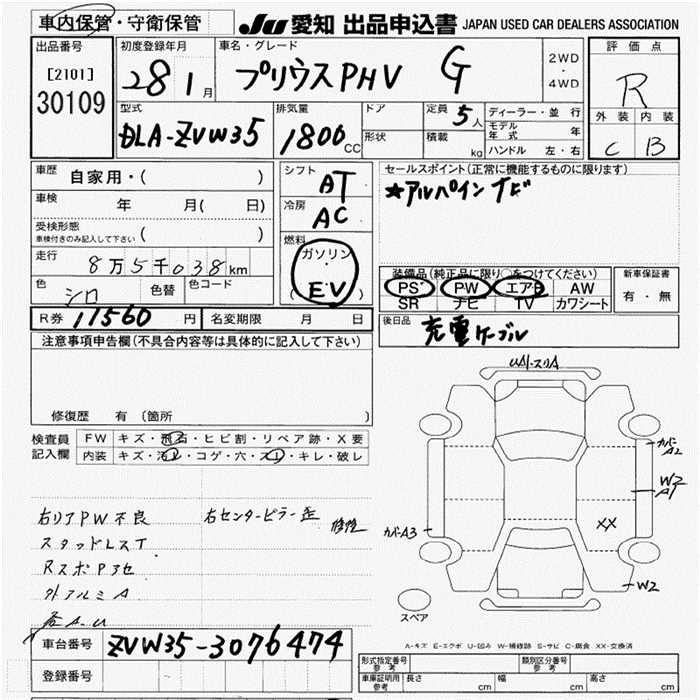 車内保管・守衛保管
JU 愛知 出品申込書 JAPAN USED CAR DEALERS ASSOCIATION
出品番号
[2101]
30109
初度登録年月
28年1月
車名・グレード
プリウスPHV G
2WD
・
4WD
評価点
R
外装 内装
C B
型式
DLA-ZVW35
排気量
1800 CC
ドア
形状
定員 5人
積載 kg
ディーラー・並行
モデル年式 年
ハンドル 左・右
車歴
自家用・( )
車検
年 月( 日)
受検形態
車検付きのみ記入して下さい ( )
走行
8万5千038km
色 シロ 色替 色コード
シフト AT
冷房 AC
燃料
ガソリン
・
(EV)
セールスポイント(正常に機能するものに限ります)
★アルパインナビ
装備品(純正品に限り○をつけてください)
PS PW エアB AW
SR ナビ TV カワシート
新車保証書
有・無
R券 11560円 名変期限 月 日
後日品 充電ケーブル
注意事項申告欄(不具合内容等は具体的に記入して下さい)
修復歴 有 (箇所
検査員記入欄
FW キズ・飛石・ヒビ割・リペア跡・X要
内装 キズ・汚レ・コゲ・穴・スリ・キレ・破レ
右リアPW不良
スタッドレスT
RスポP3セ
外アルミA
右センターピラー歪 修性
UA1・スリA
カバーA2
W2
A1
XX
カバーA3
W2
スペア
A-キズ E-エクボ U-凹み W-補修跡 S-サビ C-腐食 XX-交換済
車台番号 ZVW35-3076474
登録番号
形式指定番号
参考
類別区分番号
参考
車庫証明用
参考
長さ cm 幅 cm 高さ cm